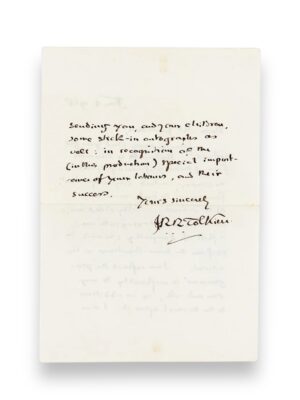 sending you, and your children,
some stick-in autographs as
well: in recognition of the
(in this production) special import-
ance of your labours, and their
success.
Yours sincerely
JRRTolkien